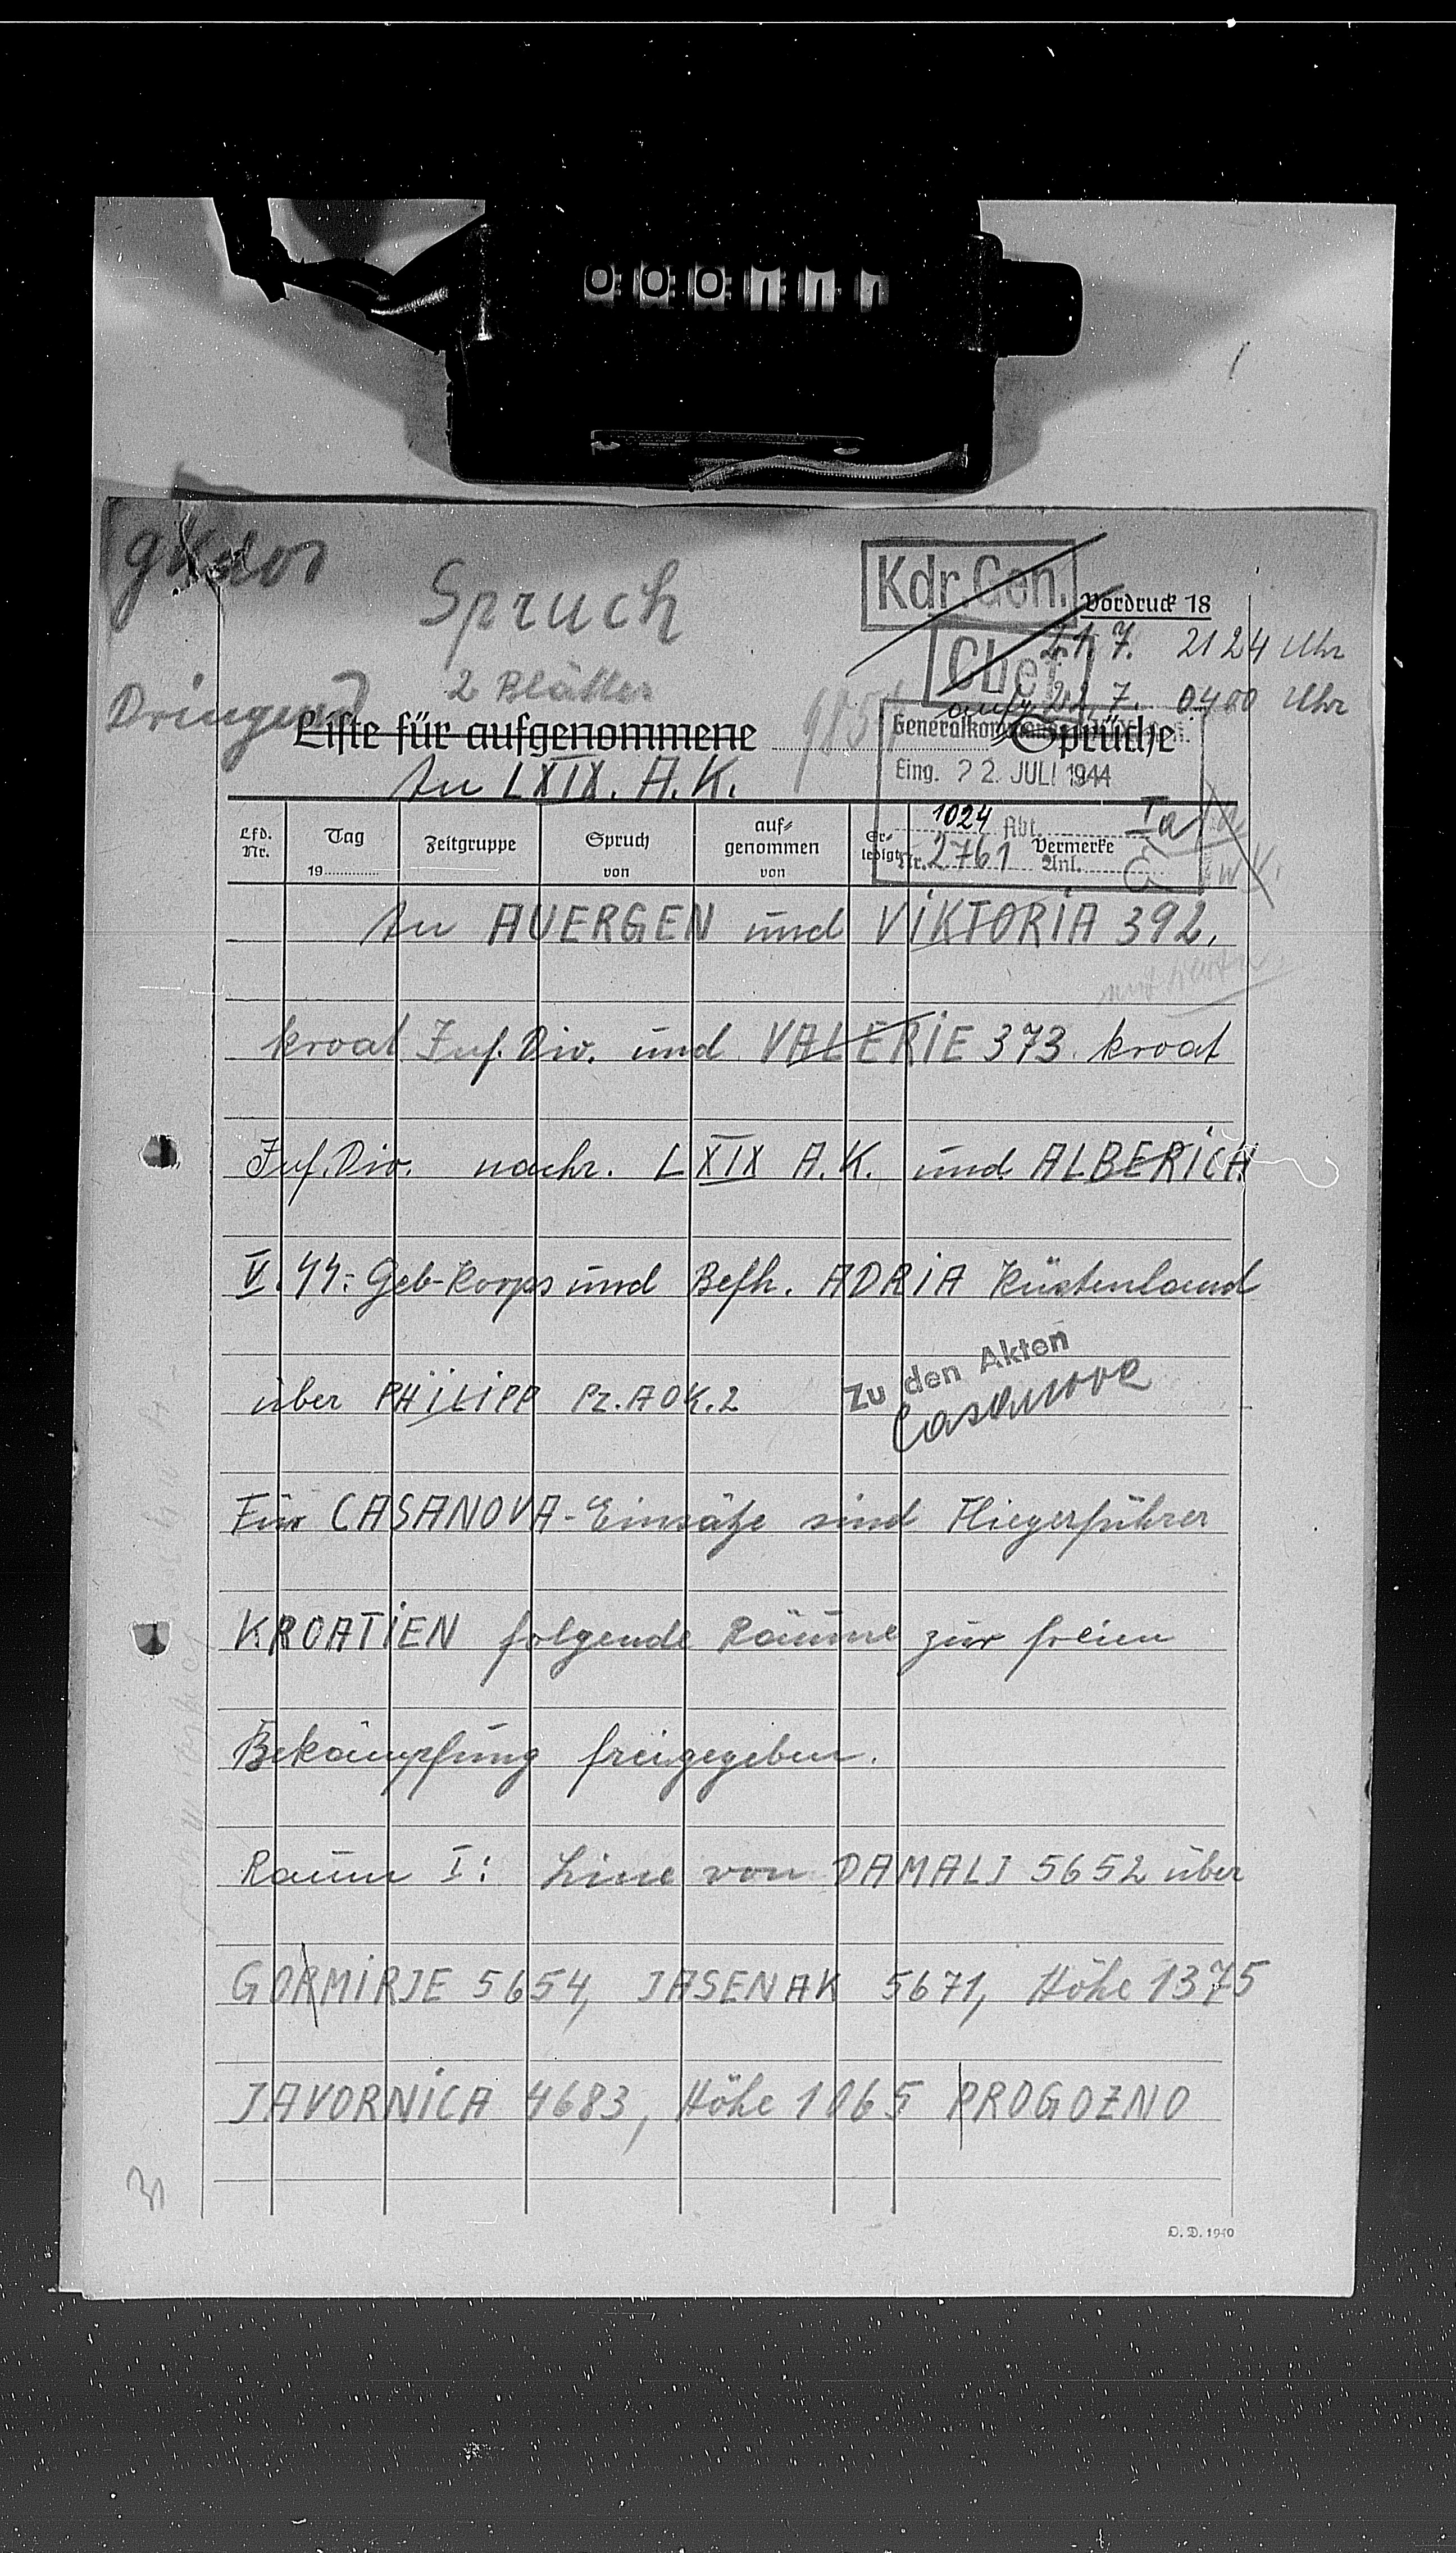 gKdos
Spruch
Kdr.Gen.
Vordruck 18
Chef
21.7. 2124 Uhr
Dringend
2 Blätter
aufg 22.7. 0400 Uhr
Liste für aufgenommene Sprüche
Eing. 22. JULI 1944
An LXIX. A.K.
1024 Abt. Ia
Nr. 2761 Anl.
Lfd. Nr.
Tag 19
Zeitgruppe
Spruch von
auf-genommen von
Er-ledigt
Vermerke
An AUERGEN und VIKTORIA 392.
kroat Inf. Div. und VALERIE 373. kroat
Inf. Div. nachr. LXIX A.K. und ALBERICH
V. ϟϟ-Geb-Korps und Befh. ADRIA Küstenland
über PHILIPP Pz.AOK.2
Zu den Akten
Casanova
Für CASANOVA-Einsätze sind Fliegerführer
KROATIEN folgende Räume zur freien
Bekämpfung freigegeben.
Raum I: Linie von DAMALJ 5652 über
GORMIRJE 5654, JASENAK 5671, Höhe 1375
JAVORNICA 4683, Höhe 1065 PROGOZNO
O. D. 1940